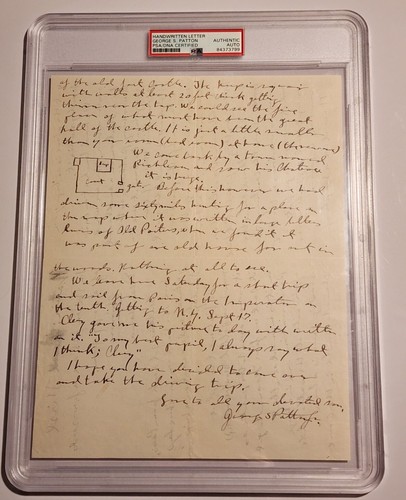 HANDWRITTEN LETTER
GEORGE S. PATTON
PSA/DNA CERTIFIED
AUTHENTIC
AUTO
84373799
of the old fort Castle. The keep is square
with walls at least 20 feet thick getting
thinner near the top. We could see the fire
place of what must have been the great
hall of the castle. It is just a little smaller
than your room (bed room) at home (
We came back by a town named
Richlieu and saw his Chateau
it is huge.
keep
court
gate
Before this however we had
driven some sixty mils hunting for a place on
the map where it was written in large letters
Ruins of Old Poitiers, when we found it it
was part of one old house far out in
the woods. Nothing at all to see.
We leave here Saturday for a short trip
and sail from Paris on the on
the tenth getting to N.Y. Sept 17.
Clery gave me his picture to day with written
on it. "To my best pupil, I always say what
I think; Clery"
I hope you have decided to come over
and take the driving trip.
Love to all your devoted son.
George S Patton Jr.